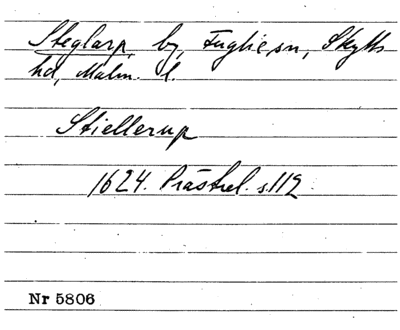 Steglarp, by, Fuglie sn, Skytts
hd, Malm. l.
Stiellerup
1624. Prästrel. s.112
Nr 5806